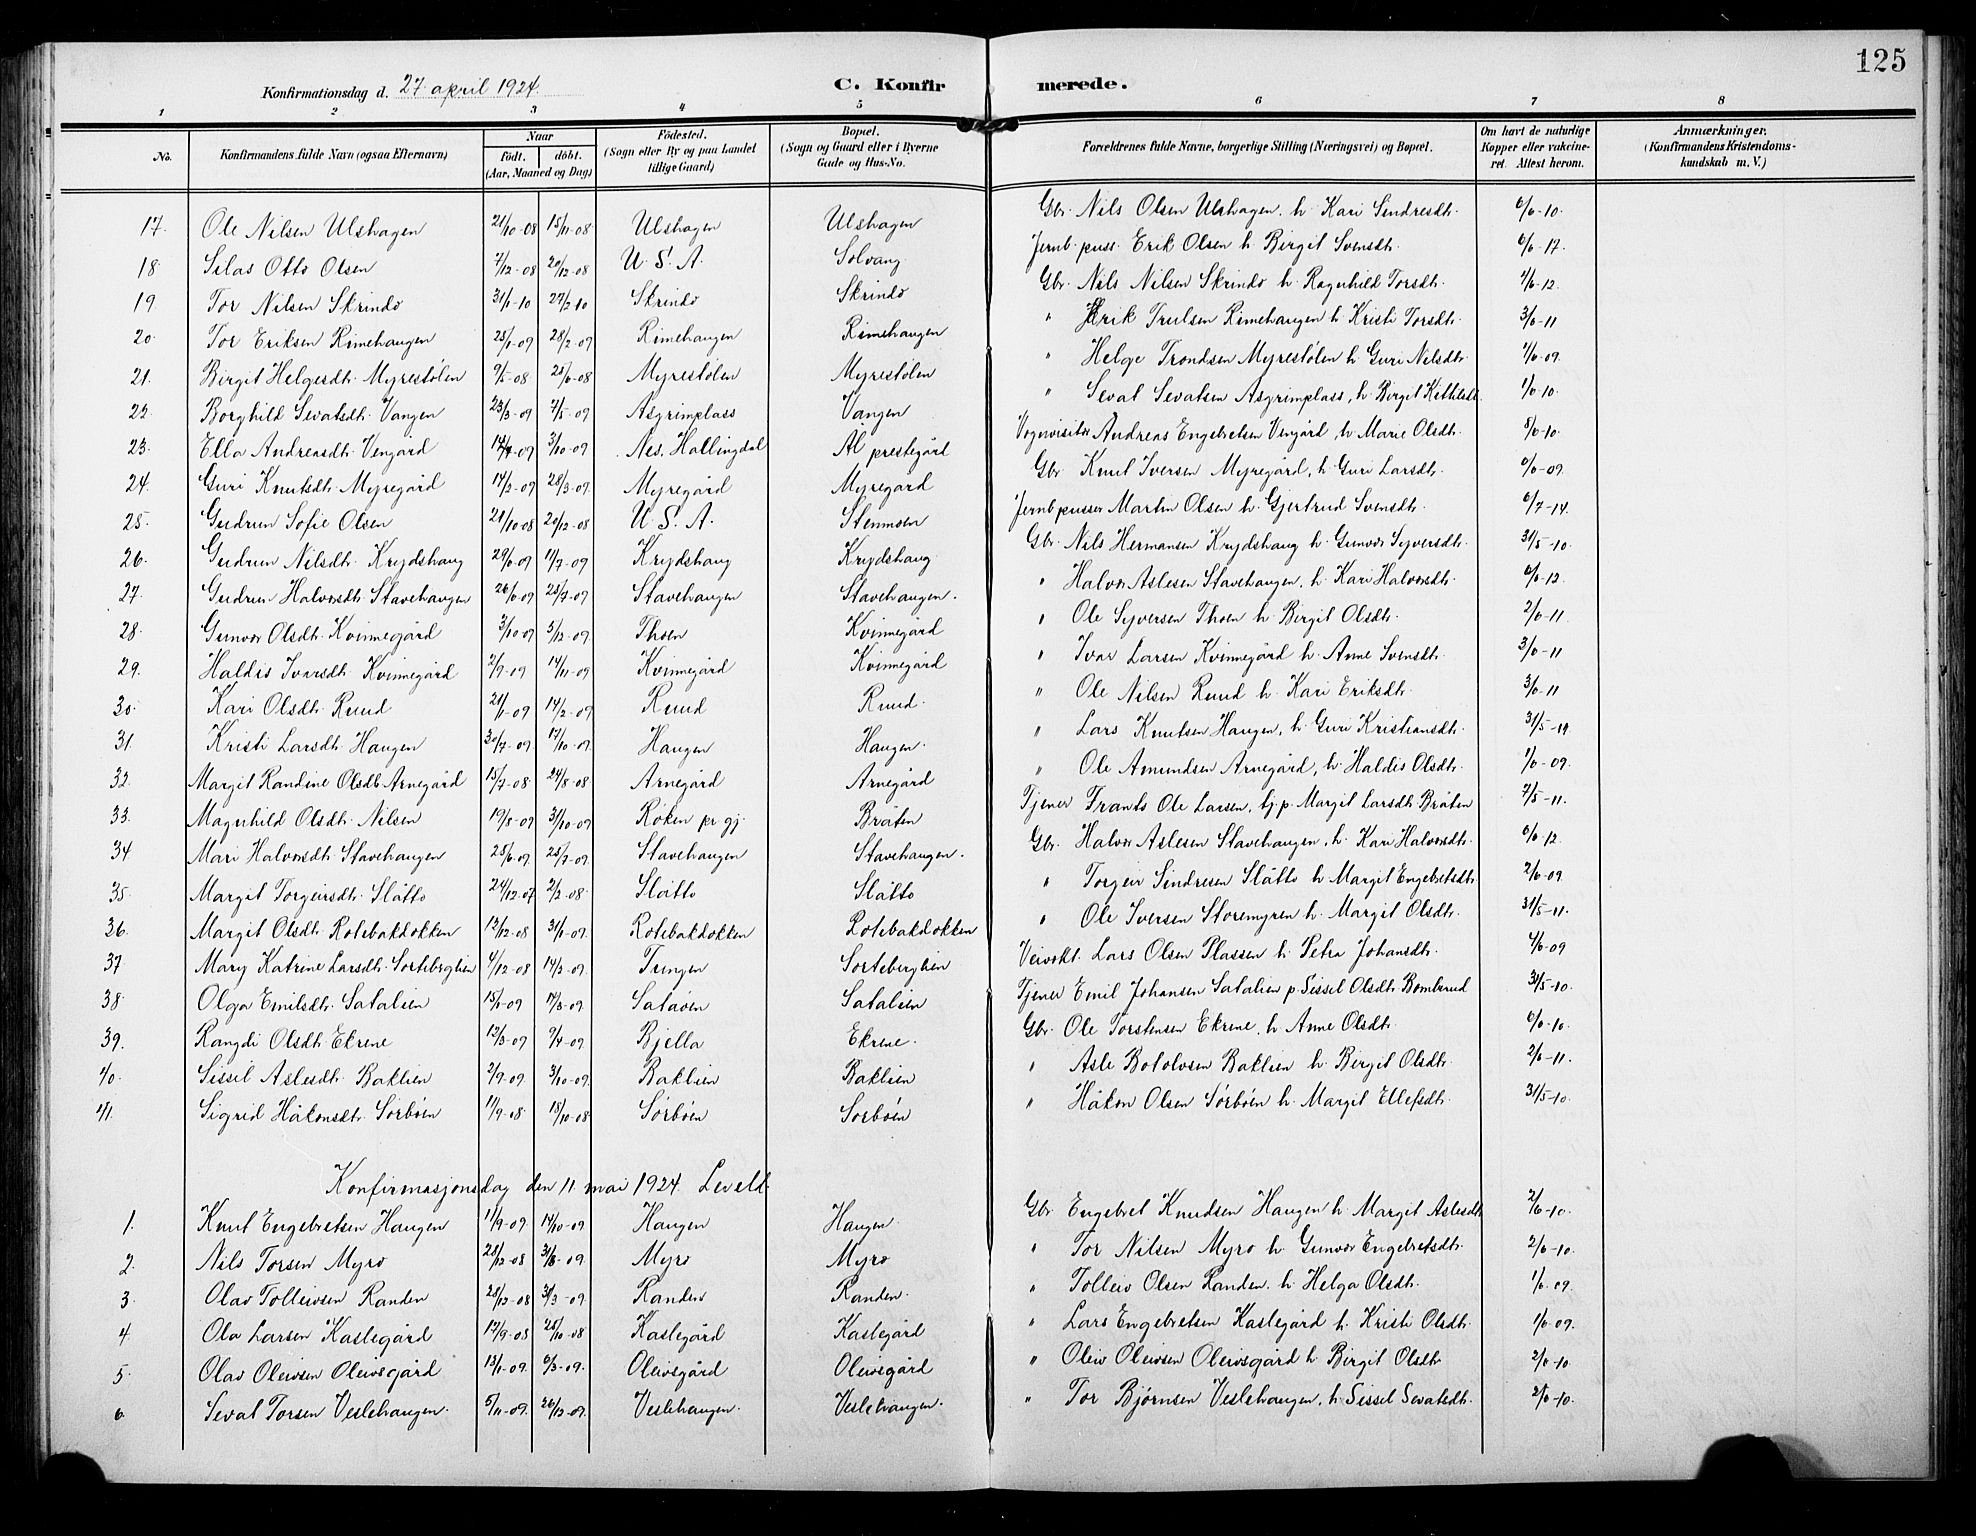 125
Konfirmationsdag d. 27 april 1924. C. Konfirmerede.
1 2 3 4 5 6 7 8
No. Konfirmandens fulde Navn (ogsaa Efternavn) Naar født. døbt. (Aar, Maaned og Dag) Fødested. (Sogn eller By og paa Landet tillige Gaard) Bopæl. (Sogn og Gaard eller i Byerne Gade og Hus-No. Forældrenes fulde Navne, borgerlige Stilling (Næringsvei) og Bopæl. Om havt de naturlige Kopper eller vakcineret. Attest herom. Anmærkninger. (Konfirmandens Kristendomskundskab m. V.)
17. Ole Nilsen Ulshagen 21/10-08 15/11-08 Ulshagen Ulshagen Gbr. Nils Olsen Ulshagen, h. Kari Sindresdtr. 6/6-10.
18 Silas Otto Olsen 7/12-08 20/12-08 U. S. A. Solvang Jernb. puss. Erik Olsen h. Birgit Svensdtr. 6/6-17.
19. Tor Nilsen Skrindo 31/1-10 27/2 10 Skrindo Skrindo Gbr. Nils Nilsen Skrindo h. Ragnhild Torsdtr. 1/6-12.
20. Tor Eriksen Rimehaugen 25/1-09 28/2-09 Rimehaugen Rimehaugen " Erik Trulsen Rimehaugen h. Kristi Torsdtr. 3/6-11
21. Birgit Helgesdtr. Myrestølen 9/5-08 25/6-08 Myrestølen Myrestølen " Helge Trondsen Myrestølen h. Guri Nilsdtr. 1/6-09.
22. Borghild Sevatsdtr. Vangen 23/3-09 2/5-09 Asgrimplass Vangen " Sevat Sevatsen Asgrimplass, h. Birgit Kittilsdtr. 1/6-10.
23. Ella Andreasdtr. Vengård 3/10-09 Nes, Hallingdal Ål prestegård Vognvisitør Andreas Engebretsen Vengård, h. Marie Olsdtr. 8/6-10.
24. Guri Knutsdtr. Myregård 14/2-09 28/3-09. Myregård Myregård Gbr. Knut Iversen Myregård, h. Guri Larsdtr. 6/6-09.
25. Gudrun Sofie Olsen 21/10-08 20/12-08 U. S. A. Stenmoen Jernb pusser Martin Olsen h. Gjertrud Svensdtr. 6/7-14.
26. Gudrun Nilsdtr. Krydshaug 29/6-09 11/7-09 Krydshaug Krydshaug Gbr. Nils Hermansen Krydshaug h. Gunvor Syversdtr. 31/5-10.
27. Gudrun Halvorsdtr. Stavehaugen 26/6 09 25/7-09 Stavehaugen Stavehaugen. " Halvor Aslesen Stavehaugen, h. Kari Halvorsdtr. 6/6-12.
28. Gunvor Olsdtr. Kvinnegård 3/10 09 5/12-09. Thoen Kvinnegård " Ole Syversen Thoen h. Birgit Olsdtr. 2/6-11
29. Haldis Ivarsdtr. Kvinnegård 2/9-09 14/11-09 Kvinnegård Kvinnegård " Ivar Larsen Kvinnegård h. Anne Svensdtr. 3/6-11
30. Kari Olsdtr. Ruud 21/1-09 14/2-09 Ruud Ruud. " Ole Nilsen Ruud h. Kari Eriksdtr. 3/6-11
31. Kristi Larsdtr. Haugen 30/7-09. 17/10-09. Haugen Haugen. " Lars Knutsen Haugen, h. Guri Kristiansdtr. 31/5-19.
32. Margit Randine Olsdtr. Arnegård 15/7-08 24/8-08 Arnegård Arnegård " Ole Amundsen Arnegård, h. Haldis Olsdtr. 1/6-09.
33. Magnhild Olsdtr. Nilsen 19/8-09 31/10-09 Røken pr gj. Bråten Tjener Frants Ole Larsen, tj. p. Margit Larsdtr. Bråten 7/5-11.
34 Mari Halvorsdtr. Stavehaugen 25/6-09. 25/7-09. Stavehaugen Stavehaugen. Gbr. Halvor Aslesen Stavehaugen, h. Kari Halvorsdtr. 6/6-12.
35. Margit Torgeirsdtr. Slåtto 24/12-07 2/2-08. Slåtto Slåtto " Torgeir Sindresen Slåtto h. Margit Engebretsdtr. 2/6-09.
36. Margit Olsdtr. Rotebakdokken 12/12-08 31/1-09. Rotebakdokken Rotebakdokken " Ole Iversen Storemyren h. Margit Olsdtr. 31/5-11.
37 Mary Katrine Larsdtr. Sorteberglien 4/12-08 14/2-09. Tungen Sorteberglien Veivokt. Lars Olsen Plassen h. Petra Johansdtr. 4/6-09
38. Olga Emilsdtr. Satalien 15/1-09 Sataøen Satalien Tjener Emil Johansen Satalien p. Sissel Olsdtr. Bombrud 31/5-10.
39. Rangdi Olsdtr. Ekrene 12/3-09 9/4-09. Bjella Ekrene. Gbr. Ole Torstensen Ekrene, h. Anne Olsdtr. 6/6-10.
40. Sissel Aslesdtr. Baklien 2/9-09. 3/10-09. Baklien Baklien " Asle Botolvsen Baklien h. Birgit Olsdtr. 2/6-11.
41. Sigrid Håkonsdtr. Sørbøen 11/9-08 18/10-08 Sørbøen Sørbøen " Håkon Olsen Sørbøen h. Margit Ellefsdtr. 31/5-10.
Konfirmasjonsdag den 11. mai 1924. Leveld.
1. Knut Engebretsen Haugen 11/9-09. 14/10-09. Haugen Haugen. Gbr. Engebret Knudsen Haugen h. Margit Aslesdtr. 2/6-10.
2. Nils Torsen Myro 28/12-08 Myro Myro " Tor Nilsen Myro h. Gunvor Engebretsdtr. 2/6-10.
3. Olav Tolleivsen Randen 28/12-08 Randen Randen. " Tolleiv Olsen Randen. h. Helga Olsdtr. 1/6-09.
4. Ola Larsen Kaslegård 12/9-08 25/10-08 Kaslegård Kaslegård " Lars Engebretsen Kaslegård h. Kristi Olsdtr. 1/6-09.
5. Olav Oleivsen Oleivsgård 13/1-09. 6/3-09. Oleivsgård Oleivsgård " Oleiv Oleivsen Oleivsgård h. Birgit Olsdtr 2/6-10.
6. Sevat Torsen Veslehaugen. 5/11-09. 26/12-09. Veslehaugen. Veslehaugen. " Tor Bjørnsen Veslehaugen, h. Sissel Sevatsdtr. 2/6-10.